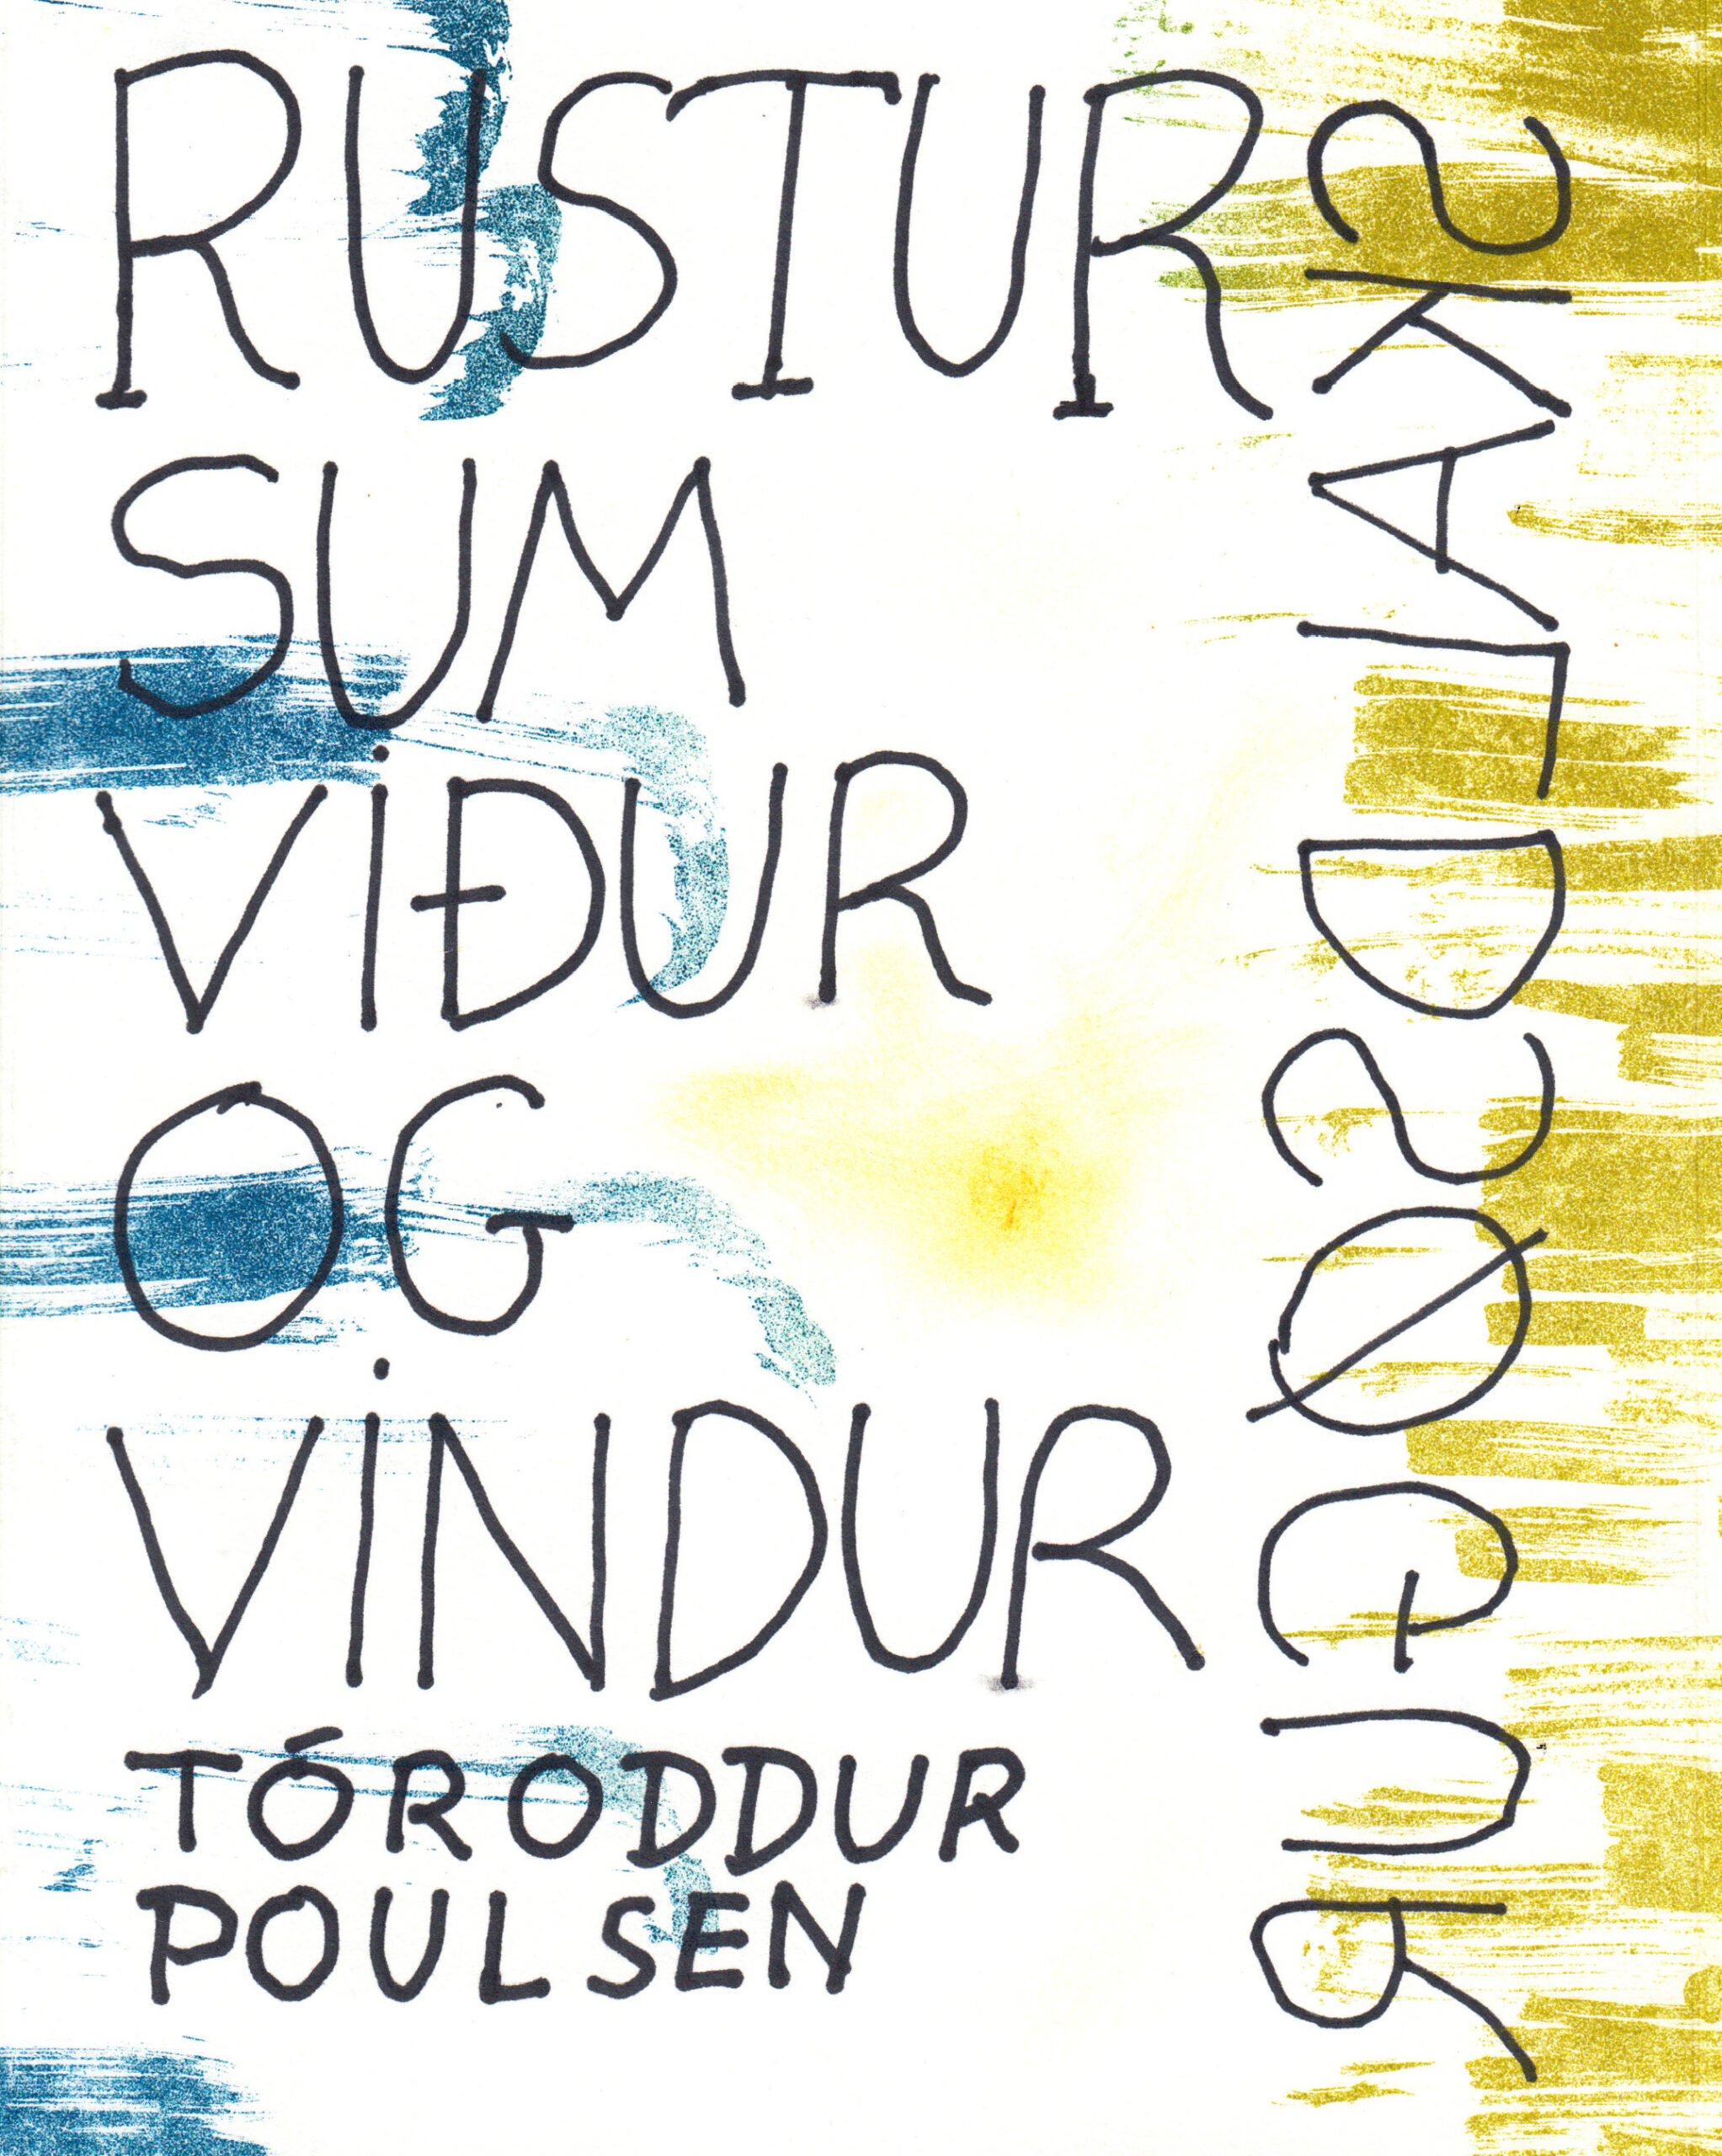 RUSTUR
SUM
VIÐUR
OG
VINDUR
TÓRODDUR
POULSEN
SKALDSØGUR